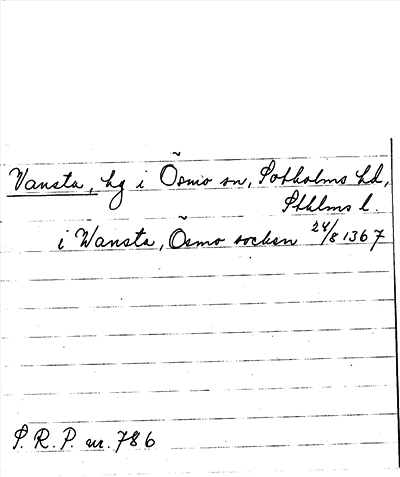 Vansta, hg i Ösmo sn, Sotholms hd,
Sthlms l.
i Wansta, Ösmo socken 24/8 1367
S. R. P. nr. 786